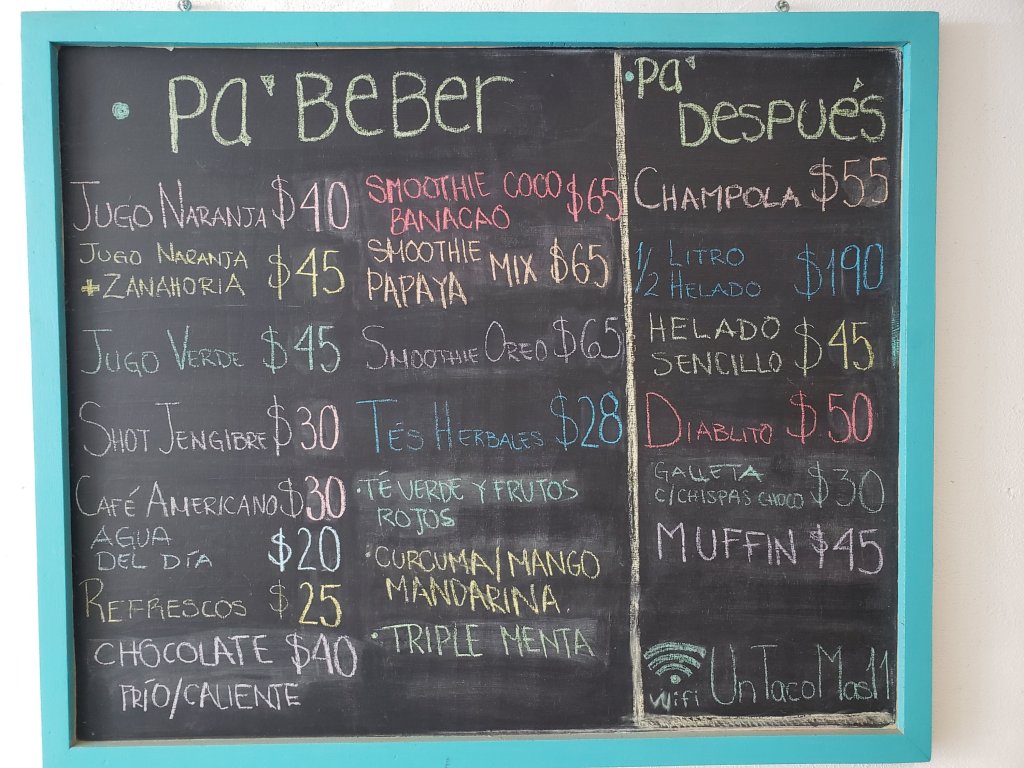 • Pa' Beber
Jugo Naranja $40
Jugo Naranja
+ Zanahoria $45
Jugo Verde $45
Shot Jengibre $30
Café Americano $30
Agua
del Día $20
Refrescos $25
Chocolate $40
Frío/Caliente
Smoothie Coco $65
Banacao
Smoothie
Papaya Mix $65
Smoothie Oreo $65
Tés Herbales $28
• Té Verde y Frutos
Rojos
• Curcuma/Mango
Mandarina.
• Triple Menta
• Pa'
Después
Champola $55
1/2 Litro
Helado $190
Helado
Sencillo $45
Diablito $50
Galleta
c/chispas choco $30
Muffin $45
Wifi UnTacoMas11